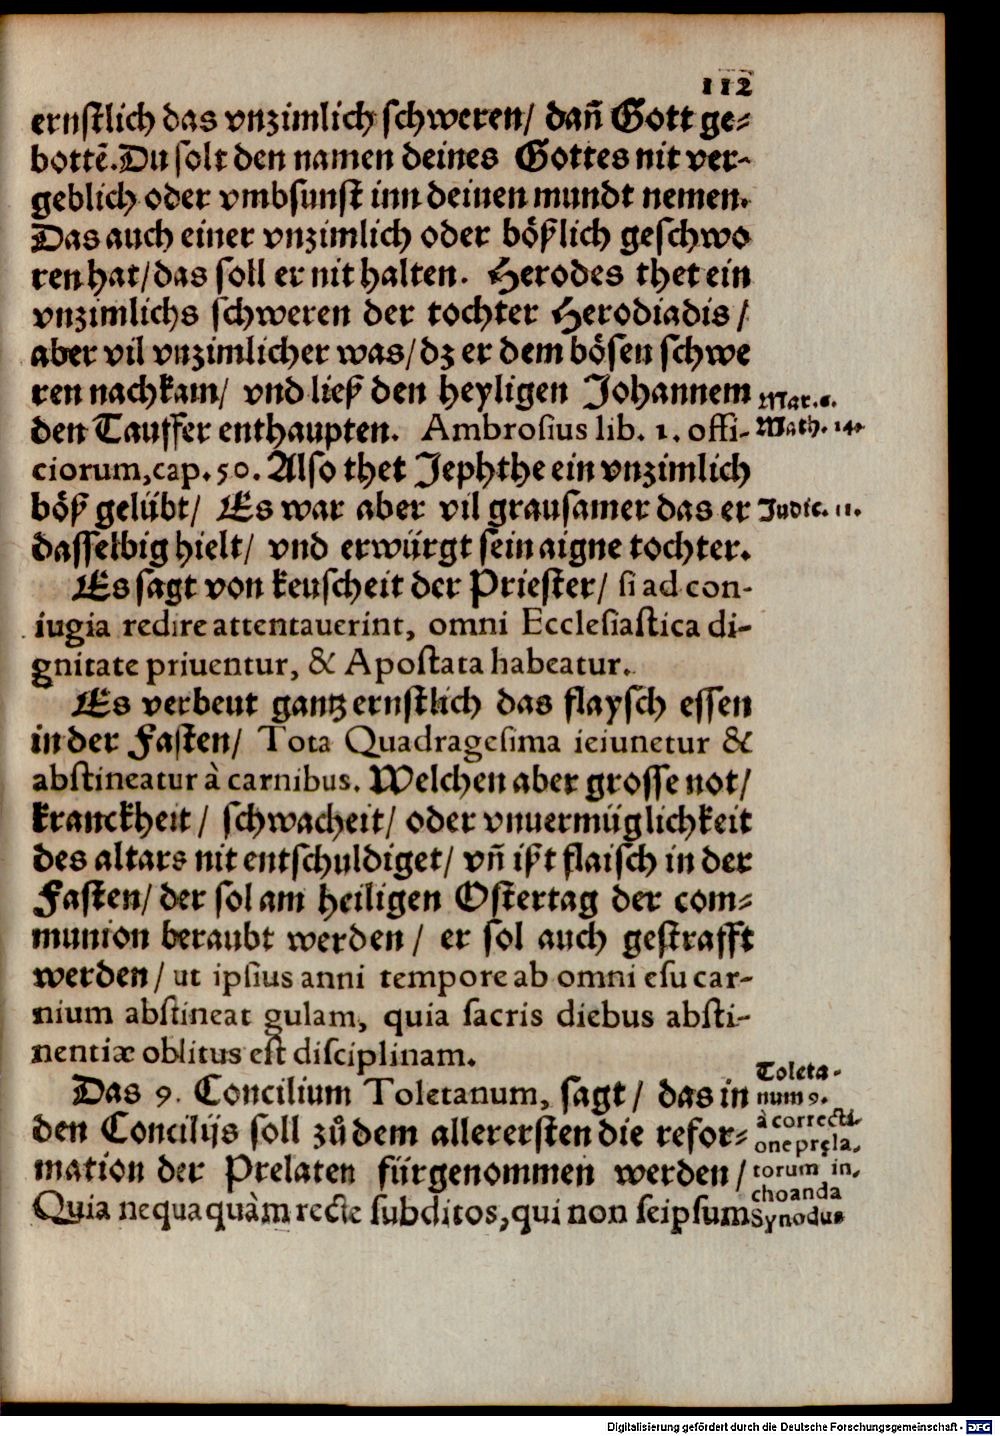 112
ernſtlich das vnzimlich ſchweren/ dañ Gott ge-
bottẽ. Du ſolt den namen deines Gottes nit ver-
geblich oder vmbſunſt inn deinen mundt nemen.
Das auch einer vnzimlich oder bößlich geſchwo
ren hat/ das ſoll er nit halten. Herodes thet ein
vnzimlichs ſchweren der tochter Herodiadis/
aber vil vnzimlicher was/ dz er dem böſen ſchwe
ren nachkam/ vnd ließ den heyligen Johannem
Mar. 6.
den Tauffer enthaupten. Ambroſius lib. 1. offi-
Math. 14.
ciorum, cap. 50. Alſo thet Jephthe ein vnzimlich
böß gelübt/ Es war aber vil grauſamer das er
Judic. 11.
daſſelbig hielt/ vnd erwürgt ſein aigne tochter.
Es ſagt von keuſcheit der Prieſter/ ſi ad con-
iugia redire attentauerint, omni Eccleſiaſtica di-
gnitate priuentur, & Apoſtata habeatur.
Es verbeut gantz ernſtlich das flayſch eſſen
in der Faſten/ Tota Quadrageſima ieiunetur &
abſtineatur à carnibus. Welchen aber groſſe not/
kranckheit/ ſchwacheit/ oder vnuermüglichkeit
des altars nit entſchuldiget/ vñ ißt flaiſch in der
Faſten/ der ſol am heiligen Oſtertag der com-
munion beraubt werden/ er ſol auch geſtrafft
werden/ ut ipſius anni tempore ab omni eſu car-
nium abſtineat gulam, quia ſacris diebus abſti-
nentiæ oblitus eſt diſciplinam.
Das 9. Concilium Toletanum, ſagt/ das in
den Concilijs ſoll zů dem allererſten die refor-
mation der Prelaten fürgenommen werden/
Quia nequaquàm recte ſubditos, qui non ſeipſum
Toleta-
num 9.
à correcti-
one pręla-
torum in-
choanda
Synodus
Digitalisierung gefördert durch die Deutsche Forschungsgemeinschaft - DFG